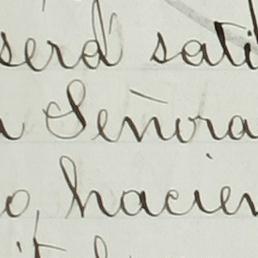 será sati
Señora
o hacien